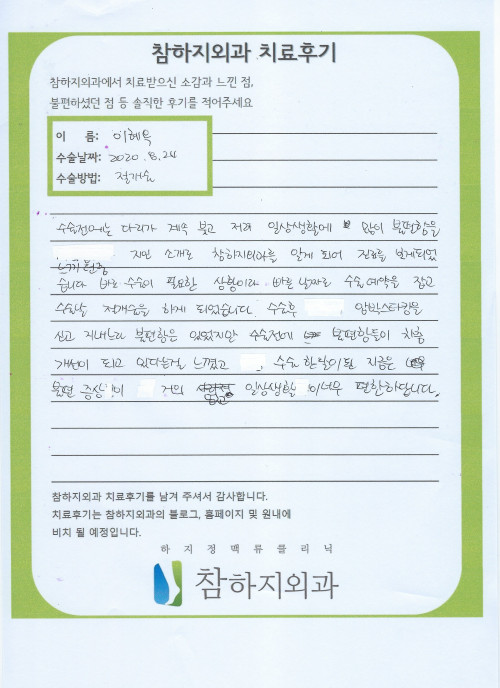 참하지외과 치료후기
참하지외과에서 치료받으신 소감과 느낀 점,
불편하셨던 점 등 솔직한 후기를 적어주세요.
이 름: 이혜옥
수술날짜: 2020.8.24
수술방법: 절개술
수술전에는 다리가 계속 붓고 저려 일상생활에 많이 불편함을
느끼던중 지인 소개로 참하지외과를 알게 되어 진료를 보게되었
습니다 바로 수술이 필요한 상황이라 빠른 날짜로 수술예약을 잡고
수술날 절개술을 하게 되었습니다. 수술후 압박스타킹을
신고 지내느라 불편함은 있었지만 수술전에 불편함들이 차츰
개선이 되고 있다는걸 느꼈고 , 수술 한달이된 지금은
불편 증상이 거의 없고 일상생활이 너무 편한하답니다.
참하지외과 치료후기를 남겨 주셔서 감사합니다.
치료후기는 참하지외과의 블로그, 홈페이지 및 원내에
비치 될 예정입니다.
하지정맥류클리닉
참하지외과